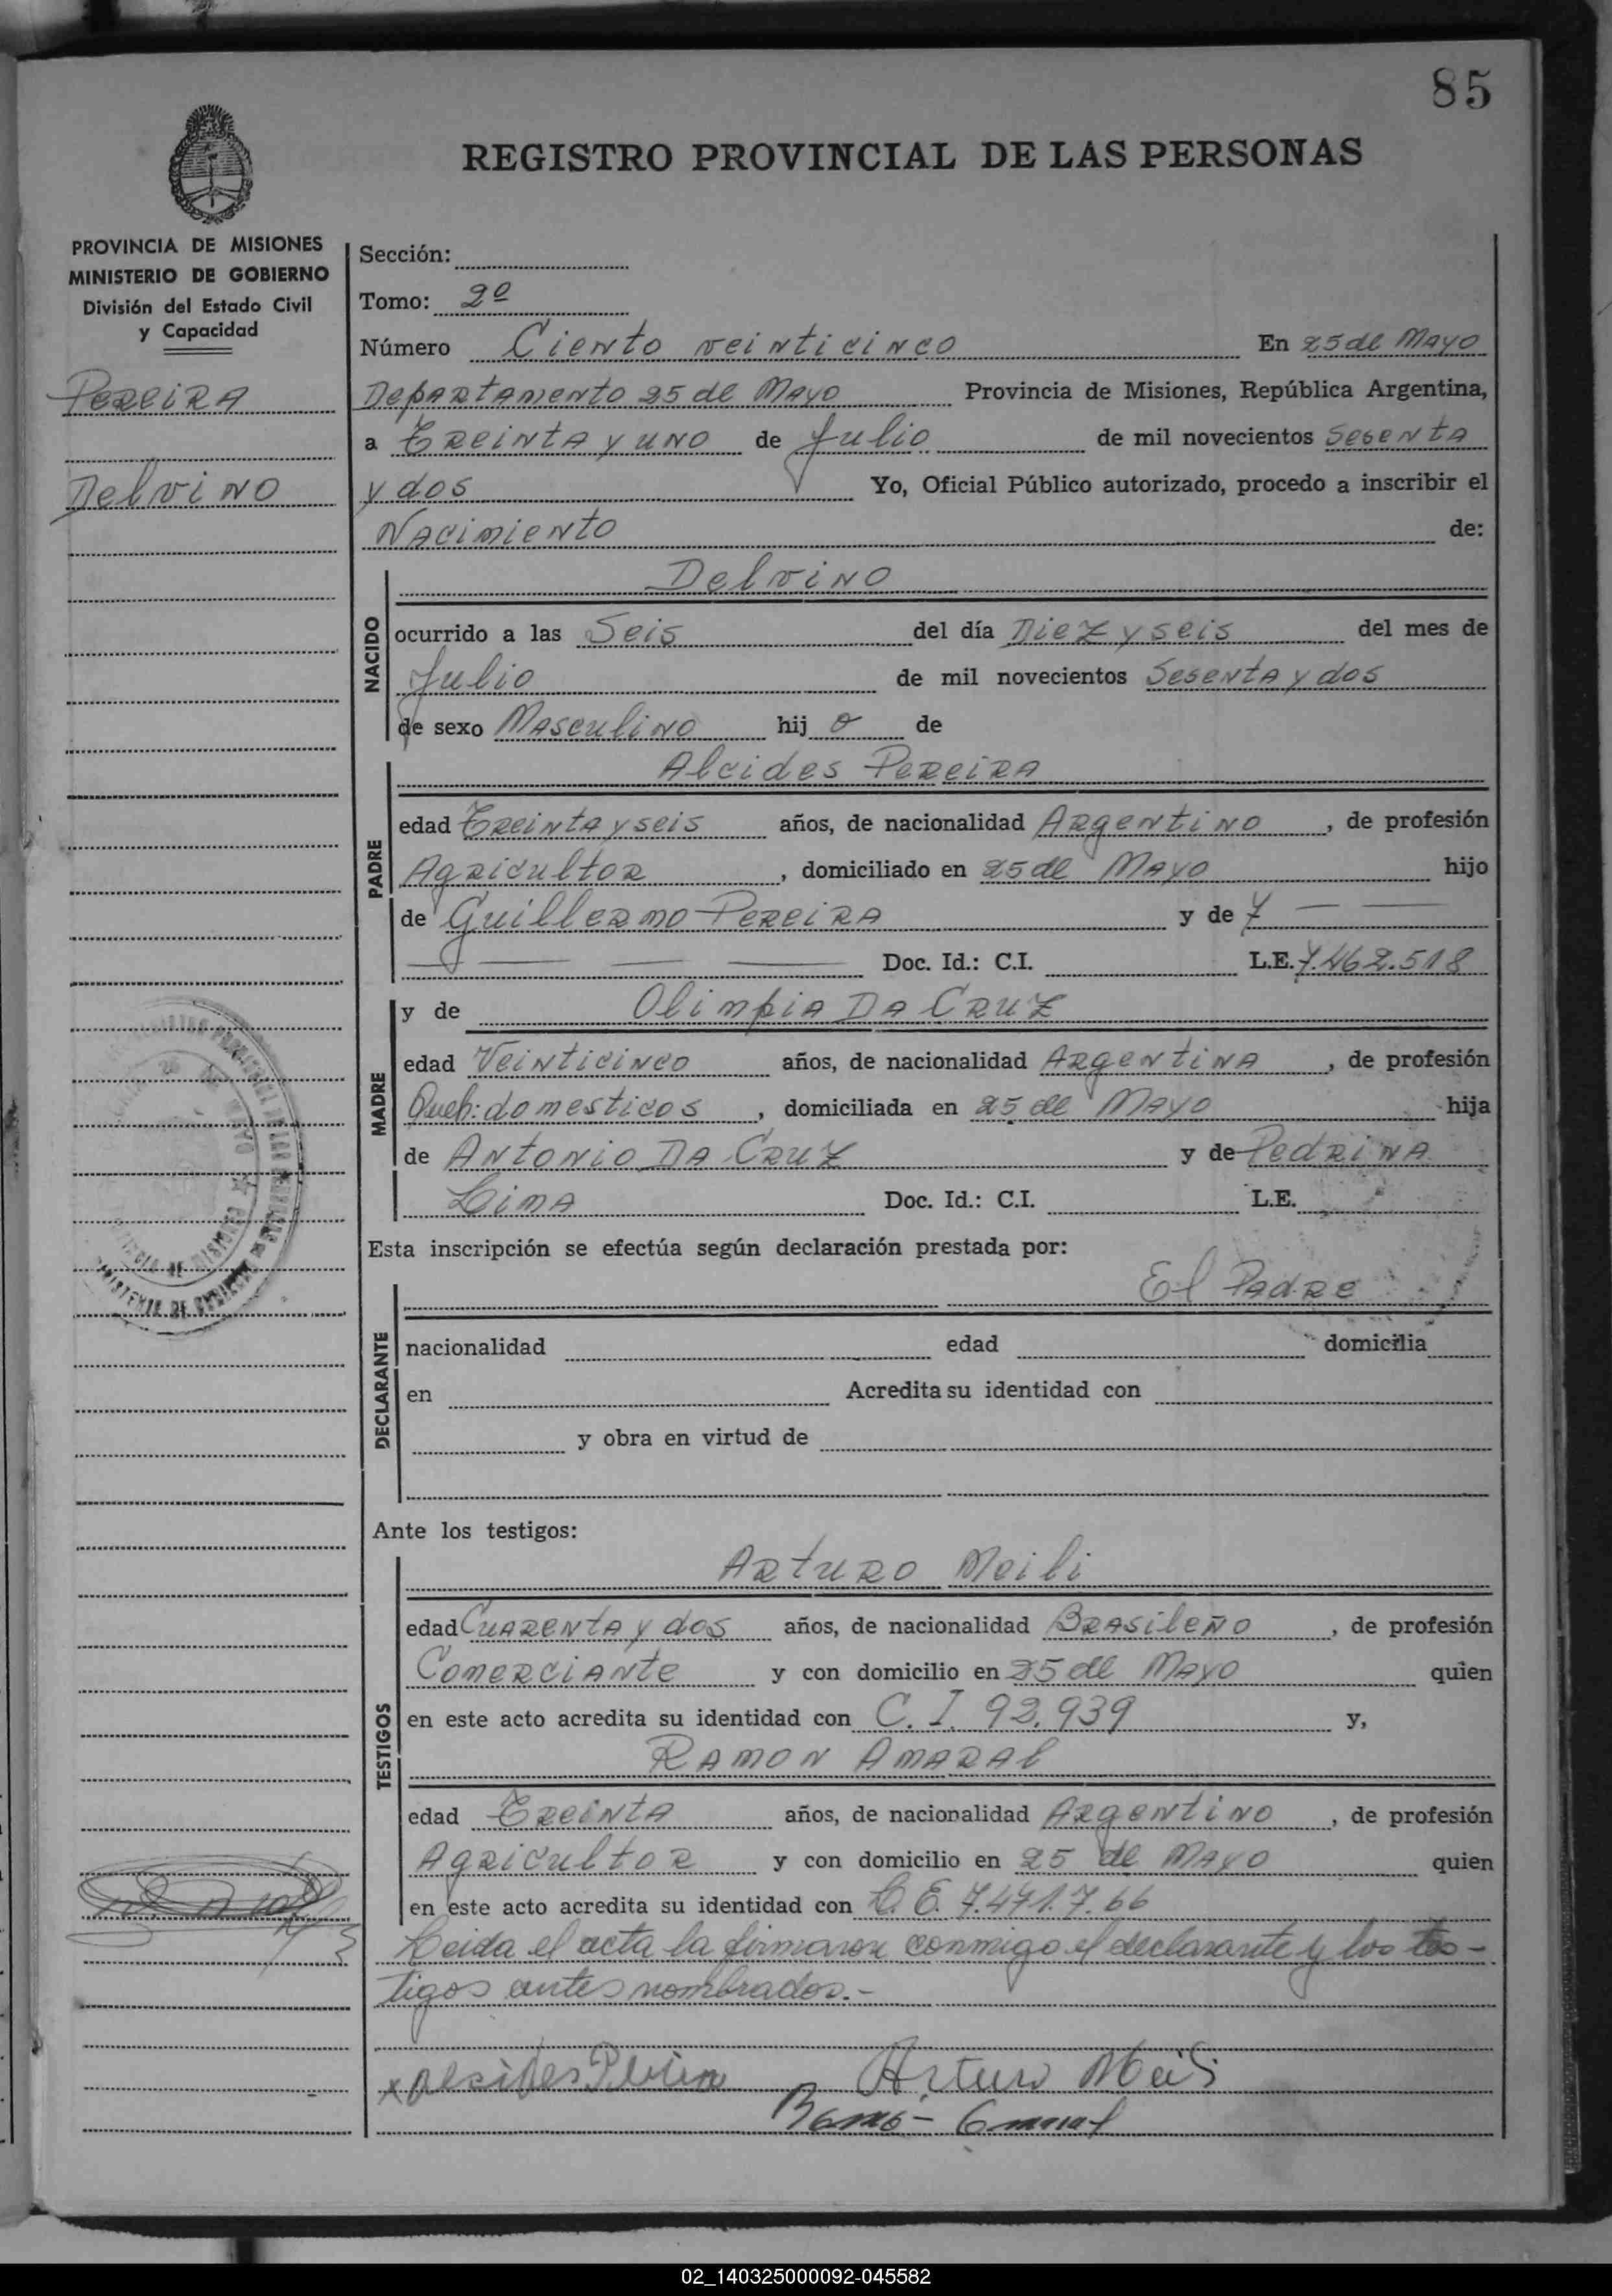 85
REGISTRO PROVINCIAL DE LAS PERSONAS
PROVINCIA DE MISIONES
MINISTERIO DE GOBIERNO
División del Estado Civil
y Capacidad
PEREIRA
Delvino
Sección:
Tomo: 2º
Número Ciento veinticinco En 25 de Mayo
Departamento 25 de Mayo Provincia de Misiones, República Argentina,
a Treinta y uno de Julio de mil novecientos Sesenta
y dos Yo, Oficial Público autorizado, procedo a inscribir el
Nacimiento de:
NACIDO
Delvino
ocurrido a las Seis del día Diez y seis del mes de
Julio de mil novecientos Sesenta y dos
de sexo Masculino hijo de
PADRE
Alcides Pereira
edad Treinta y seis años, de nacionalidad Argentino, de profesión
Agricultor, domiciliado en 25 de Mayo hijo
de Guillermo Pereira y de
Doc. Id.: C.I. L.E. 7.462.518
MADRE
y de Olimpia Da Cruz
edad Veinticinco años, de nacionalidad Argentina, de profesión
Queh: domesticos, domiciliada en 25 de Mayo hija
de Antonio Da Cruz y de Pedrina
Lima Doc. Id.: C.I. L.E.
Esta inscripción se efectúa según declaración prestada por:
DECLARANTE
El Padre
nacionalidad edad domicilia
en Acredita su identidad con
y obra en virtud de
Ante los testigos:
TESTIGOS
Arturo Meili
edad Cuarenta y dos años, de nacionalidad Brasileño, de profesión
Comerciante y con domicilio en 25 de Mayo quien
en este acto acredita su identidad con C. I. 92.939 y,
Ramon Amaral
edad Treinta años, de nacionalidad Argentino, de profesión
Agricultor y con domicilio en 25 de Mayo quien
en este acto acredita su identidad con L. E. 7.471.766
Leida el acta la firmaron conmigo el declarante y los tes-
tigos antes nombrados.-
x Alcides Pereira Arturo Meili
02_140325000092-045582